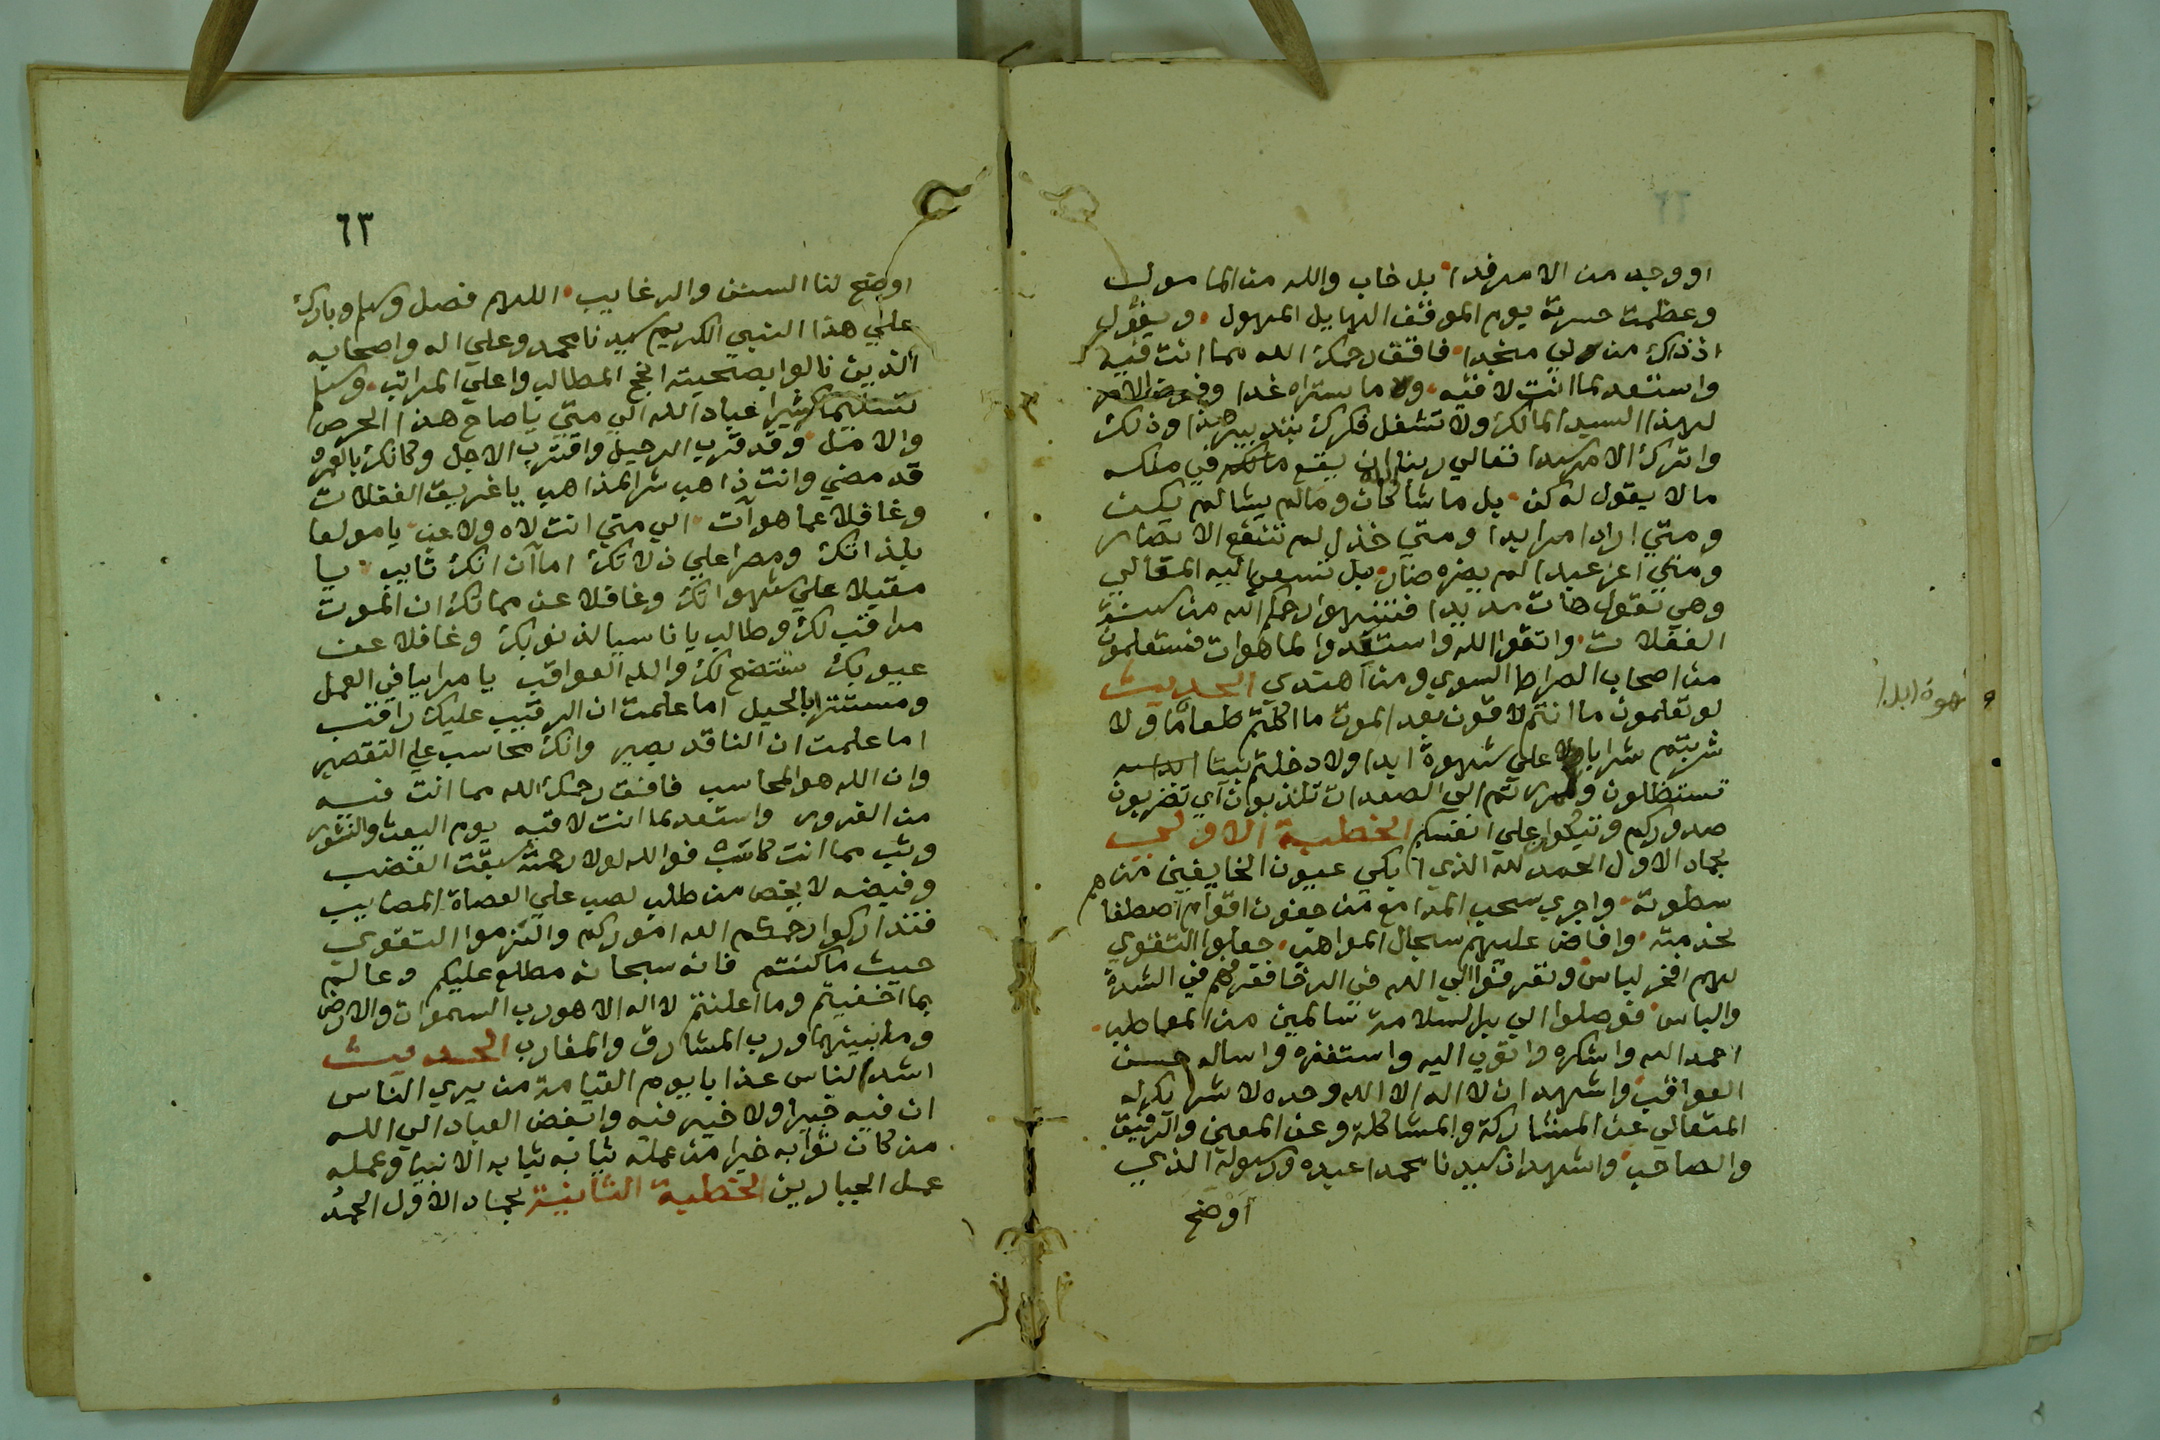 او وجد من الامر فدا بل خاب والله من المامول
وعظمت حسرته يوم الموقف الهايل المهول ويقول
اذ ذاك من لي منجدا فافق رحمك الله مما انت فيه
واستعد لما انت لاقيه ولا ما ستراه غدا وفوض الامر
لهذا السيد المالك ولا تشغل فكرك بتدبير هذا وذلك
واترك الامر سيدا تعالي ربنا ان يقع في ملكه
ما لا يقول له كن بل ما شا كان وما لم يشا لم يكن
ومتي اراد امرا بدا ومتي خذل لم تنتفع الا بصار
ومتي اعز عبدا لم يضره ضار بل تسعي اليه المعالي
وهي تقول هات يد بيدا فتنبهوا رحمكم الله من سنة
الغفلات واتقوا الله واستعدوا لما هوات فستعلمون
من اصحاب الصراط السوي ومن اهتدي الحديث
لو تعلمون ما انتم لاقون بعد الموت ما اكلتم طعاما ولا
شربتم شرابا علي شهوة ابدا ولا دخلتم بيتا
تستظلون ولمررتم الي الصعدات تلذبون اي تضربون
صدوركم وتبكوا علي انفسكم الخطبة الاولي
بجماد الاول الحمد لله الذي ابكي عيون الخايفين من
سطوته واجري سحب المدامع من جفون اقوام اصطفاهم
لخدمته وافاض عليهم سجال المواهب جعلوا التقوي
لهم افخر لباس وتعرفوا الي الله في الرخا فعرفهم في الشدة
والباس فوصلوا الي بر السلامة سالمين من المعاطب
احمد الله واشكره واتوب اليه واستغفره واساله حسن
العواقب واشهد ان لا اله الا الله وحده لا شريك له
المتعالي عن المشاركة والمشاكلة وعن المعين والرفيق
والصاحب واشهد ان سيدنا محمدا عبده ورسوله الذي
اوضح
شهوة ابدا
٦٣
اوضح لنا السنن والرغايب اللهم فصل وسلم وبارك
علي هذا النبي الكريم سيدنا محمد وعلي اله واصحابه
الذين نالوا بصحبته انجح المطالب واعلي المراتب وسلم
تسليما كثيرا عباد الله الي متي يا صاح هذا الحرص
والامل وقد قرب الرحيل واقترب الاجل وكانك بالعمر
قد مضي وانت ذاهب شر المذاهب يا غريق الغفلات
وغافلا عما هوآت الي متي انت لاه ولاعب يا مولعا
بلذاتك ومصرا علي زلاتك اما آن انك تايب يا
مقبلا علي شهواتك وغافلا عن مماتك ان الموت
مراقب لك وطالب يا ناسيا لذنوبك وغافلا عن
عيوبك ستتضح لك والله العواقب يا مرايا في العمل
ومستترا بالحيل اما علمت ان الرقيب عليك راقب
اما علمت ان الناقد بصير وانك محاسب علي التقصير
وان الله هو المحاسب فافق رحمك الله مما انت فيه
من الغرور واستعد لما انت لاقيه يوم البعث والنشور
وتب مما انت كاسب فوالله لولا رحمته سبقت الغضب
وفيضه لا يخص من طلب لصب علي العصاة المصايب
فتداركوا رحمكم الله اموركم والتزموا التقوي
حيث ما كنتم فانه سبحانه مطلع عليكم وعالم
بما اخفيتم وما اعلنتم لا اله الا هو رب السموات والارض
وما بينهما ورب المشارق والمغارب الحديث
اشد الناس عذابا يوم القيامة من يري الناس
ان فيه خيرا ولا خير فيه وابغض العباد الي الله
من كان ثوابه خيرا من عمله ثيابه ثياب الانبيا وعمله
عمل الجبارين الخطبة الثانية بجماد الاول الحمد